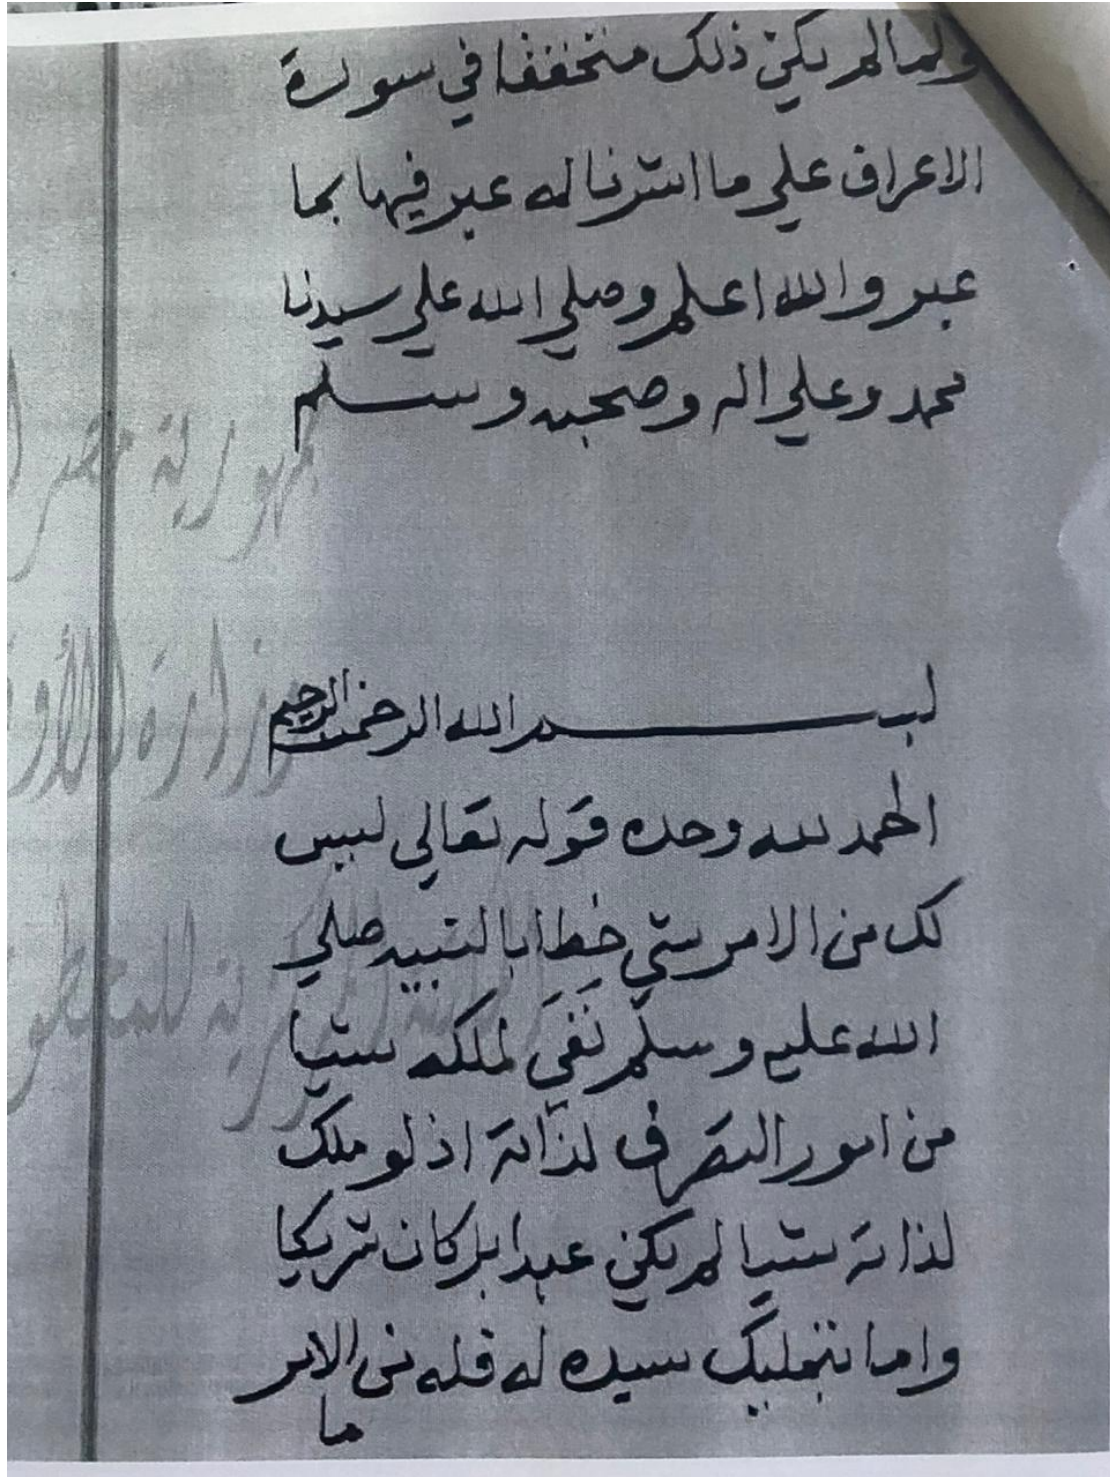 ولما لم يكن ذلك متحققا في سورة
الاعراف علي ما اشرنا له عبر فيها بما
عبر والله اعلم وصلي الله علي سيدنا
محمد وعلي اله وصحبه وسلم
بسم الله الرحمن الرحيم
الحمد لله وحده قوله تعالي ليس
لك من الامر شي خطابا لنبيه صلي
الله عليه وسلم نفي لملكه شيا
من امور التصرف لذاته اذ لو ملك
لذاته شيا لم يكن عبدا بل كان شريكا
واما بتمليك سيده له فله من الامر
ما
جمهورية مصر
وزارة الأو